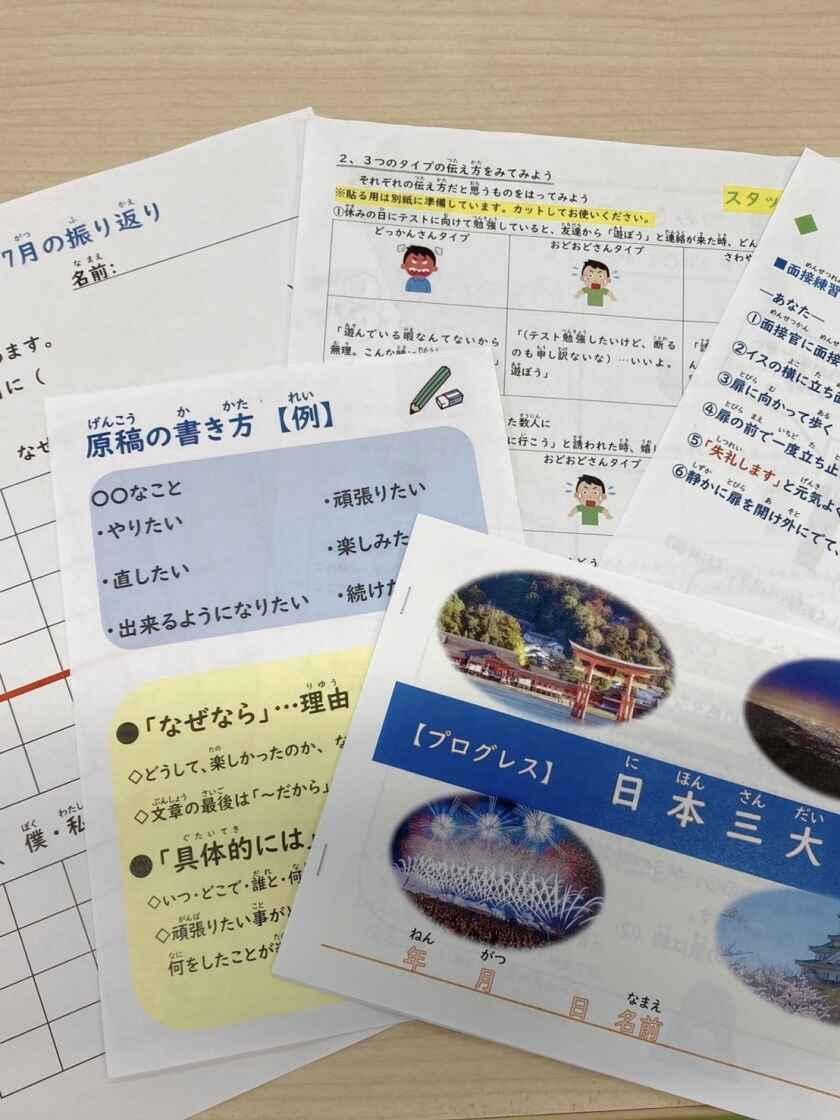 7月の振り返り
名前:
ます。
に（
なぜ
僕・私
2、3つのタイプの伝え方をみてみよう
それぞれの伝え方だと思うものをはってみよう
※貼る用は別紙に準備しています。カットしてお使いください。
スタッ
①休みの日にテストに向けて勉強していると、友達から「遊ぼう」と連絡が来た時、どん
どっかんさんタイプ
おどおどさんタイプ
さわや
「遊んでいる暇なんてないから
無理。こんな時
「(テスト勉強したいけど、断る
のも申し訳ないな）…いいよ。
遊ぼう」
た数人に
に行こう」と誘われた時、嬉し
おどおどさんタイプ
■面接練習
―あなた―
①面接官に面接
②イスの横に立ち面
③扉に向かって歩く
④扉の前で一度立ち止
⑤「失礼します」と元気よく
⑥静かに扉を開け外にでて、
原稿の書き方【例】
〇〇なこと
・やりたい
・直したい
・出来るようになりたい
・頑張りたい
・楽しみた
・続けた
●「なぜなら」…理由
◇どうして、楽しかったのか、な
◇文章の最後は「～だから」
●「具体的には」
◇いつ・どこで・誰と・何
◇頑張りたい事が
何をしたことが
【プログレス】
日本三大
年 月 日 名前